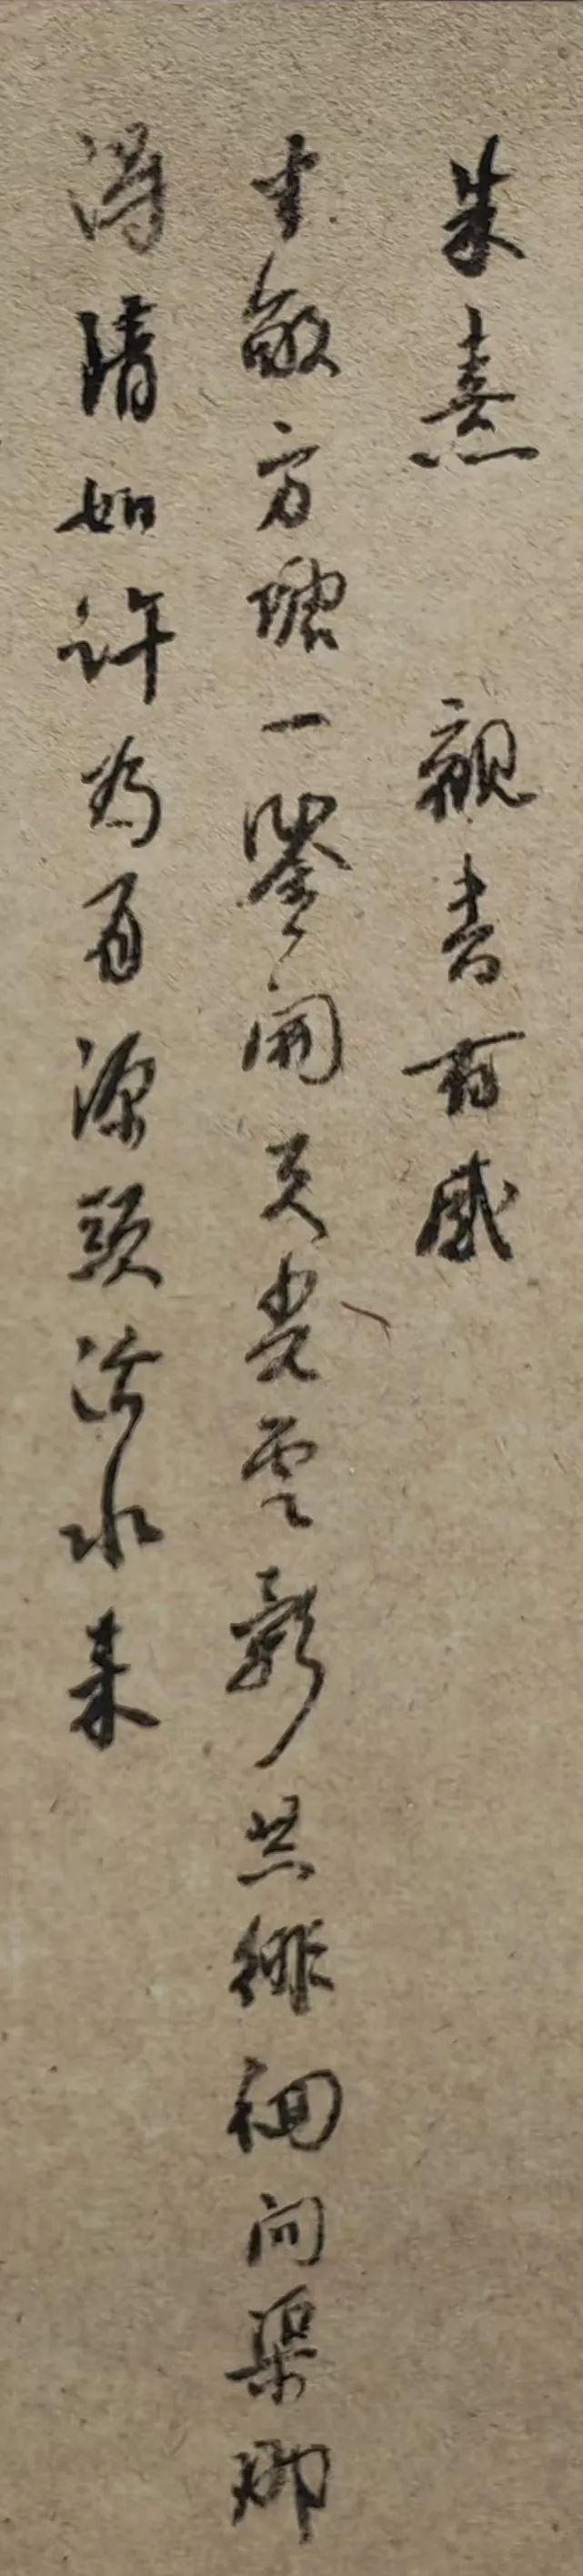 朱熹 觀書有感
半畝方塘一鑒開天光雲影共徘徊問渠那
得清如許為有源頭活水來